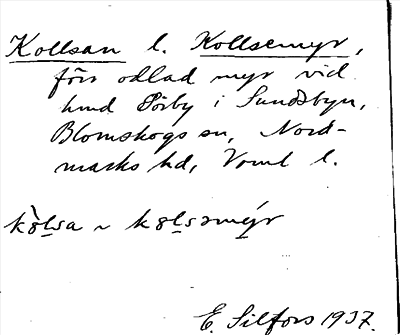 Kollsan l. Kollsemyr,
förr odlad myr vid
hmd Pörby i Sundsbyn,
Blomskogs sn, Nord-
marks hd, Verml l.
kòlsa ~ kolsəmýr
E. Silfors 1937.